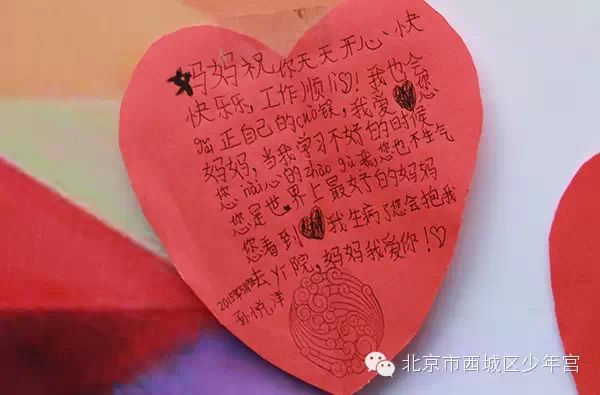 妈妈祝你天天开心、快
快乐乐,工作顺li♡!我也会
gǎi正自己的cuò误,我爱您
妈妈,当我学习不好的时候
您nài心的zhào gù我,您也不生气
您是世界上最好的妈妈
您看到我生病了您会抱我
去yī院,妈妈我爱你!♡
孙悦洋
北京市西城区少年宫